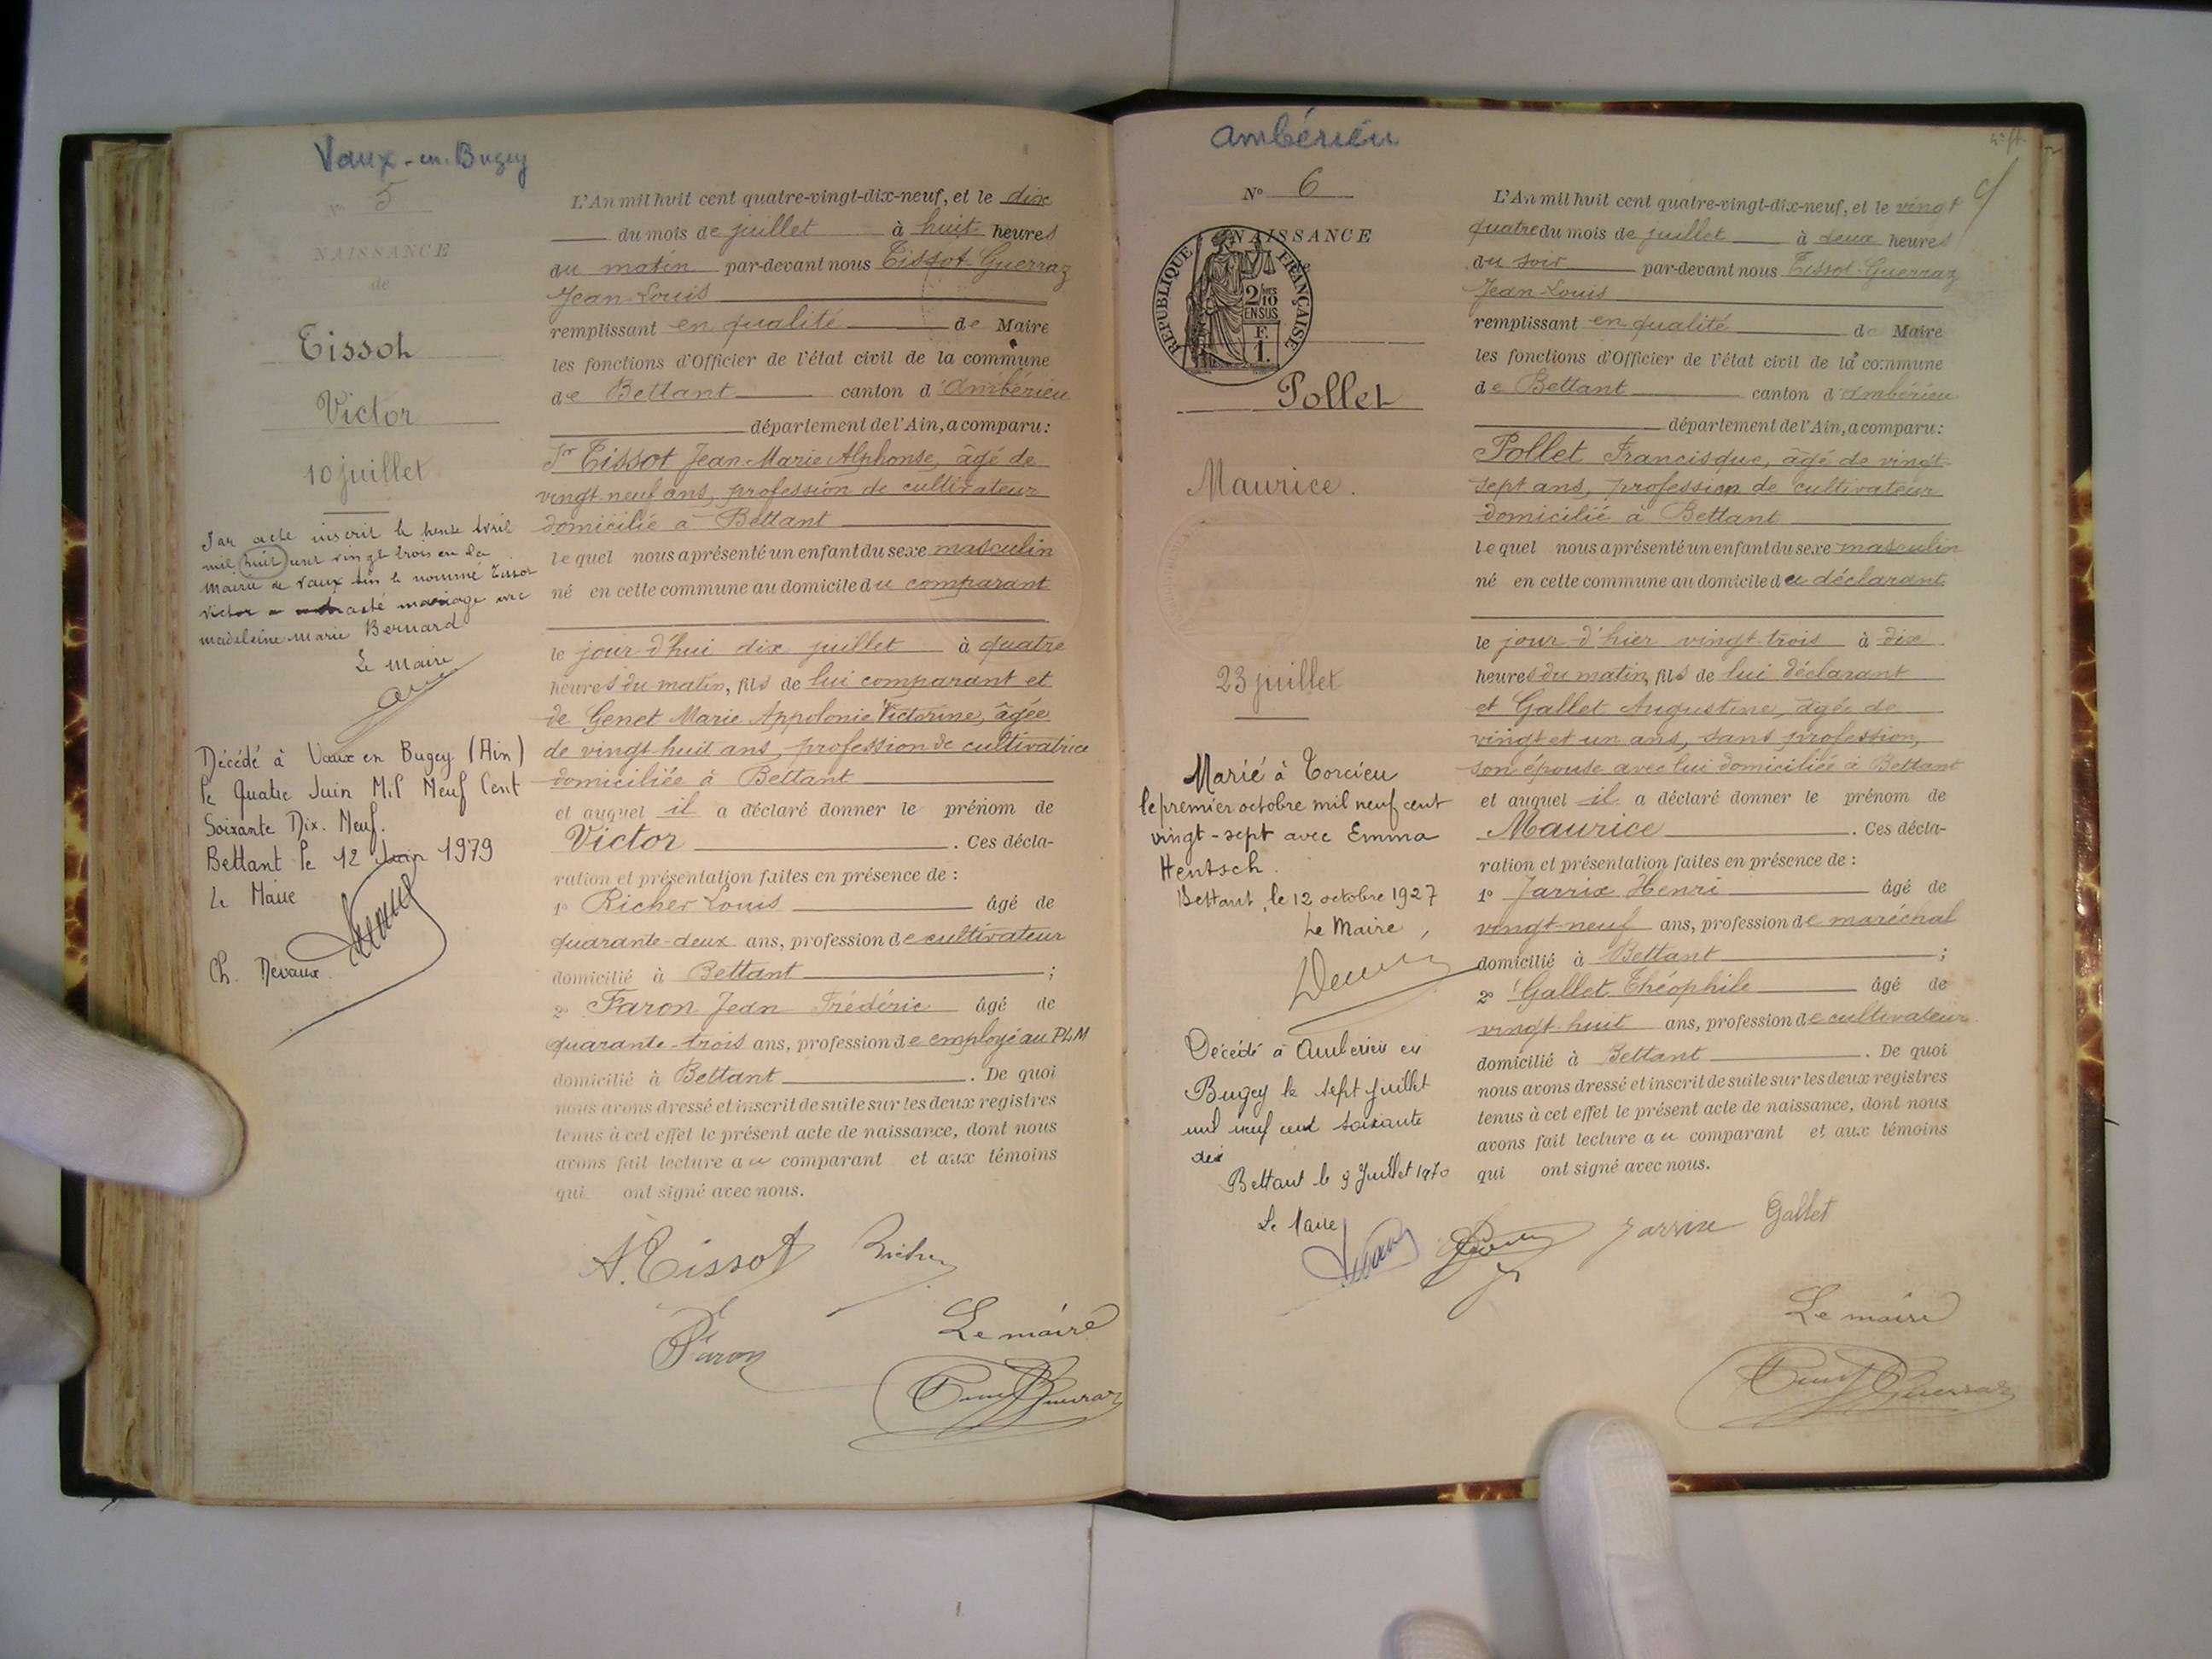 Vaux-en-Bugey
N° 5
NAISSANCE
de
Tissot
Victor
10 juillet
Par acte inscrit le trente Avril
mil huit cent vingt trois en la
mairie de Vaux le nommé Tissot
Victor a contracté mariage avec
madeleine Marie Bernard
Le Maire
Décédé à Vaux en Bugey (Ain)
le Quatre Juin Mil Neuf Cent
Soixante Dix. Neuf.
Bettant le 12 Juin 1979
Le Maire
Ch. Devaux
L'An mil huit cent quatre-vingt-dix-neuf, et le dix
du mois de juillet à huit heures
du matin par-devant nous Tissot-Guerraz
Jean-Louis
remplissant en qualité de Maire
les fonctions d'Officier de l'état civil de la commune
de Bettant canton d'Ambérieu
département de l'Ain, a comparu :
Sr Tissot Jean-Marie Alphonse, âgé de
vingt-neuf ans, profession de cultivateur
domicilié à Bettant
lequel nous a présenté un enfant du sexe masculin
né en cette commune au domicile du comparant
le jour d'hui dix juillet à quatre
heures du matin, fils de lui comparant et
de Genet Marie Appolonie Victorine, âgée
de vingt-huit ans, profession de cultivatrice
domiciliée à Bettant
et auquel il a déclaré donner le prénom de
Victor . Ces décla-
ration et présentation faites en présence de :
1° Richer Louis âgé de
quarante-deux ans, profession de cultivateur
domicilié à Bettant ;
2° Faron Jean Frédéric âgé de
quarante-trois ans, profession de employé au PLM
domicilié à Bettant . De quoi
nous avons dressé et inscrit de suite sur les deux registres
tenus à cet effet le présent acte de naissance, dont nous
avons fait lecture au comparant et aux témoins
qui ont signé avec nous.
A. Tissot Richer
Faron
Le maire
Ambérieu
N° 6
NAISSANCE
RÉPUBLIQUE FRANÇAISE
2/10
EN SUS
F.
1.
Pollet
Maurice.
23 juillet
Marié à Torcieu
le premier octobre mil neuf cent
vingt-sept avec Emma
Hentsch.
Bettant, le 12 octobre 1927
Le Maire,
Décédé à Ambérieu en
Bugey le sept juillet
mil neuf cent soixante
dix
Bettant le 9 Juillet 1970
Le Maire
L'An mil huit cent quatre-vingt-dix-neuf, et le vingt
quatre du mois de juillet à deux heures
du soir par-devant nous Tissot-Guerraz
Jean-Louis
remplissant en qualité de Maire
les fonctions d'Officier de l'état civil de la commune
de Bettant canton d'Ambérieu
département de l'Ain, a comparu :
Pollet Francisque, âgé de vingt-
sept ans, profession de cultivateur
domicilié à Bettant
lequel nous a présenté un enfant du sexe masculin
né en cette commune au domicile du déclarant
le jour d'hier vingt-trois à dix
heures du matin, fils de lui déclarant
et Gallet Augustine, âgée de
vingt et un ans, sans profession,
son épouse avec lui domiciliée à Bettant
et auquel il a déclaré donner le prénom de
Maurice . Ces décla-
ration et présentation faites en présence de :
1° Jarrix Henri âgé de
vingt-neuf ans, profession de maréchal
domicilié à Bettant ;
2° Gallet Théophile âgé de
vingt-huit ans, profession de cultivateur
domicilié à Bettant . De quoi
nous avons dressé et inscrit de suite sur les deux registres
tenus à cet effet le présent acte de naissance, dont nous
avons fait lecture au comparant et aux témoins
qui ont signé avec nous.
Jarrix Gallet
Le maire